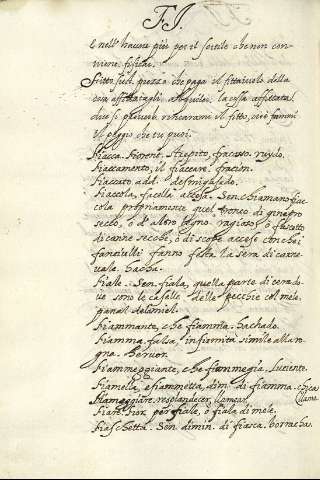 F I.
e nell' havere più per il sottile che non con
viene. fisicar.
Fitto. sust. prezzo che paga il fittaivolo della
cosa affittatagli. alquiler. la cosa affittata.
dice si proverb. rincarami il fitto, cioè fammi
il peggio che tu puoi.
Fiacca. fiorent. strepito, fracasso. ruydo.
Fiaccamento, il fiaccare. fracion.
Fiaccato. add.
Fiaccola, facella accesa. Sen. chiamano fiac
cola propriamente quel tronco di ginepro
secco, o d' altro legno ragiato, o fascetto
di canne secche, o di scope accese con che i
fanciulli fanno festa la sera di carne
vale. hacha.
Fiale. Sen. fiala, quella parte di cera do
ve sono le caselle delle pecchie col mele.
panal de la miel.
Fiammante, che fiamma. hachado.
Fiamma falsa, infermità simile alla ro
gna. hervor.
Fiammeggiante, che fiammeggia. luciente.
Fiamella, e fiammetta, dim. di fiamma. chica llama
Fiameggiare. resplandecer, llamear.
Fiare. Fior. per fiale, o fiala di mele.
Fiaschetta. Sen. dimin. di fiasca. borracha.